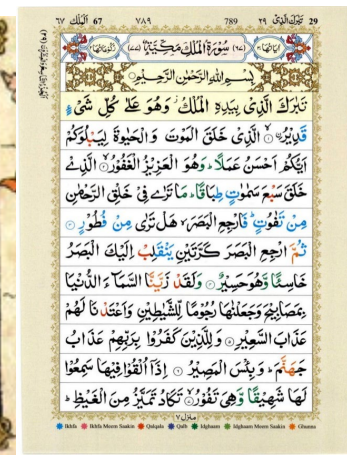 ٦٧ الملك 67 ٧٨٩ 789 تبرك الذى ٢٩ 29
سُوْرَةُ الْمُلْكِ مَكِّيَّةٌ (٦٧) (٧٧)
بِسْمِ اللهِ الرَّحْمٰنِ الرَّحِيْمِ
تَبٰرَكَ الَّذِىْ بِيَدِهِ الْمُلْكُ ز وَهُوَ عَلٰى كُلِّ شَىْءٍ
قَدِيْرُ ۙ‏﴿۱﴾ ۨالَّذِىْ خَلَقَ الْمَوْتَ وَالْحَيٰوةَ لِيَبْلُوَكُمْ
اَيُّكُمْ اَحْسَنُ عَمَلًا ؕ وَهُوَ الْعَزِيْزُ الْغَفُوْرُ ۙ‏﴿۲﴾ الَّذِىْ
خَلَقَ سَبْعَ سَمٰوٰتٍ طِبَاقًا ؕ مَا تَرٰى فِىْ خَلْقِ الرَّحْمٰنِ
مِنْ تَفٰوُتٍ ؕ فَارْجِعِ الْبَصَرَ ۙ هَلْ تَرٰى مِنْ فُطُوْرٍ ﴿۳﴾
ثُمَّ ارْجِعِ الْبَصَرَ كَرَّتَيْنِ يَنْقَلِبْ اِلَيْكَ الْبَصَرُ
خَاسِئًا وَّهُوَ حَسِيْرٌ ﴿۴﴾ وَلَقَدْ زَيَّنَّا السَّمَآءَ الدُّنْيَا
بِمَصَابِيْحَ وَجَعَلْنٰهَا رُجُوْمًا لِّلشَّيٰطِيْنِ وَاَعْتَدْنَا لَهُمْ
عَذَابَ السَّعِيْرِ ﴿۵﴾ وَلِلَّذِيْنَ كَفَرُوْا بِرَبِّهِمْ عَذَابُ
جَهَنَّمَ ؕ وَبِئْسَ الْمَصِيْرُ ﴿۶﴾ اِذَاۤ اُلْقُوْا فِيْهَا سَمِعُوْا
لَهَا شَهِيْقًا وَّهِىَ تَفُوْرُ ۙ‏﴿۷﴾ تَكَادُ تَمَيَّزُ مِنَ الْغَيْظِ ؕ
منزل ٧
Ikhfa Ikhfa Meem Saakin Qalqala Qalb Idghaam Idghaam Meem Saakin Ghunna